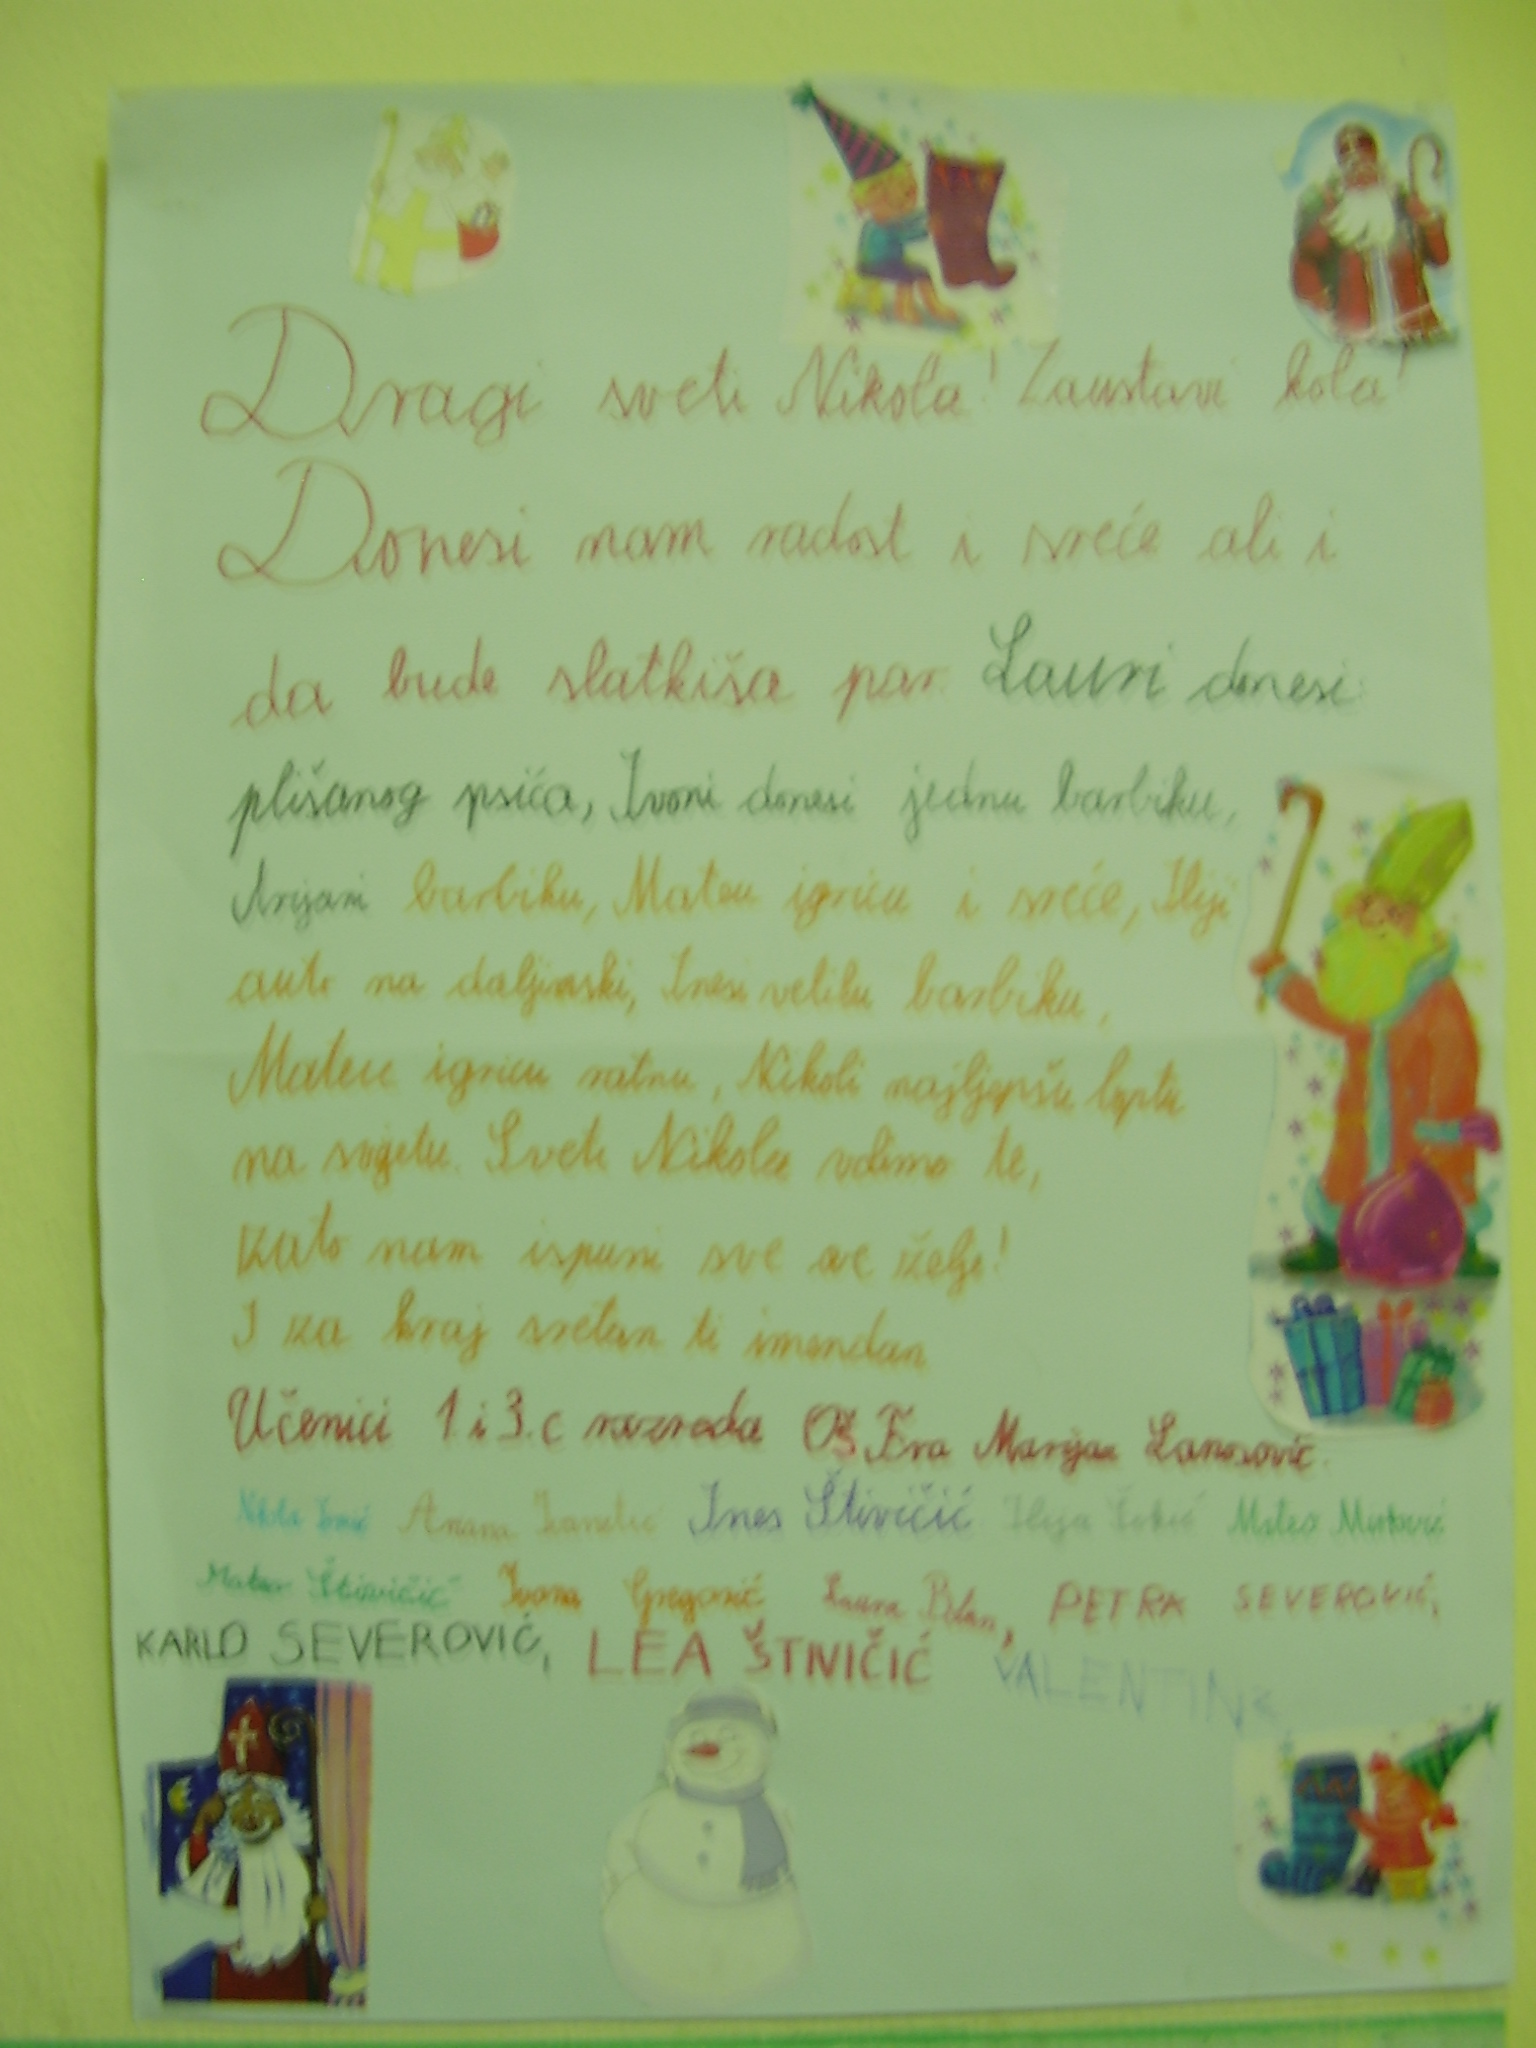 Dragi sveti Nikola! Zaustavi kola!
Donesi nam radost i sreće ali i
da bude slatkiša par. Lauri donesi
plišanog psića, Ivoni donesi jednu barbiku,
Arijani barbiku, Mateu igricu i sreće, Iliji
auto na daljinski, Inesi veliku barbiku,
Mateu igricu ratnu, Nikoli najljepšu loptu
na svijetu. Sveti Nikola volimo te,
zato nam ispuni sve ove želje!
I za kraj sretan ti imendan
Učenici 1. i 3. c razreda OŠ Fra Marijan Lanosović.
Nikola Ines Štivičić Ilija Mateo
Mateo Štivičić Ivona Gregorić Laura Bilan, PETRA SEVEROVIĆ,
KARLO SEVEROVIĆ, LEA ŠTIVIČIĆ VALENTINA